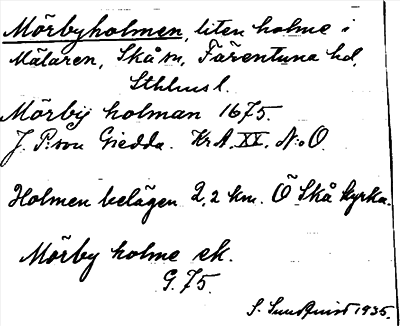 Mörbyholmen, liten holme i
Mälaren, Skå sn, Färentuna hd,
Sthlms l.
Mörby holman 1675.
J. P:son Giedda. KrA. XX. N:o O.
Holmen belägen 2,2 km. Ö Skå kyrka.
Mörby holme ek.
G. 75.
S. Sundqvist 1935.